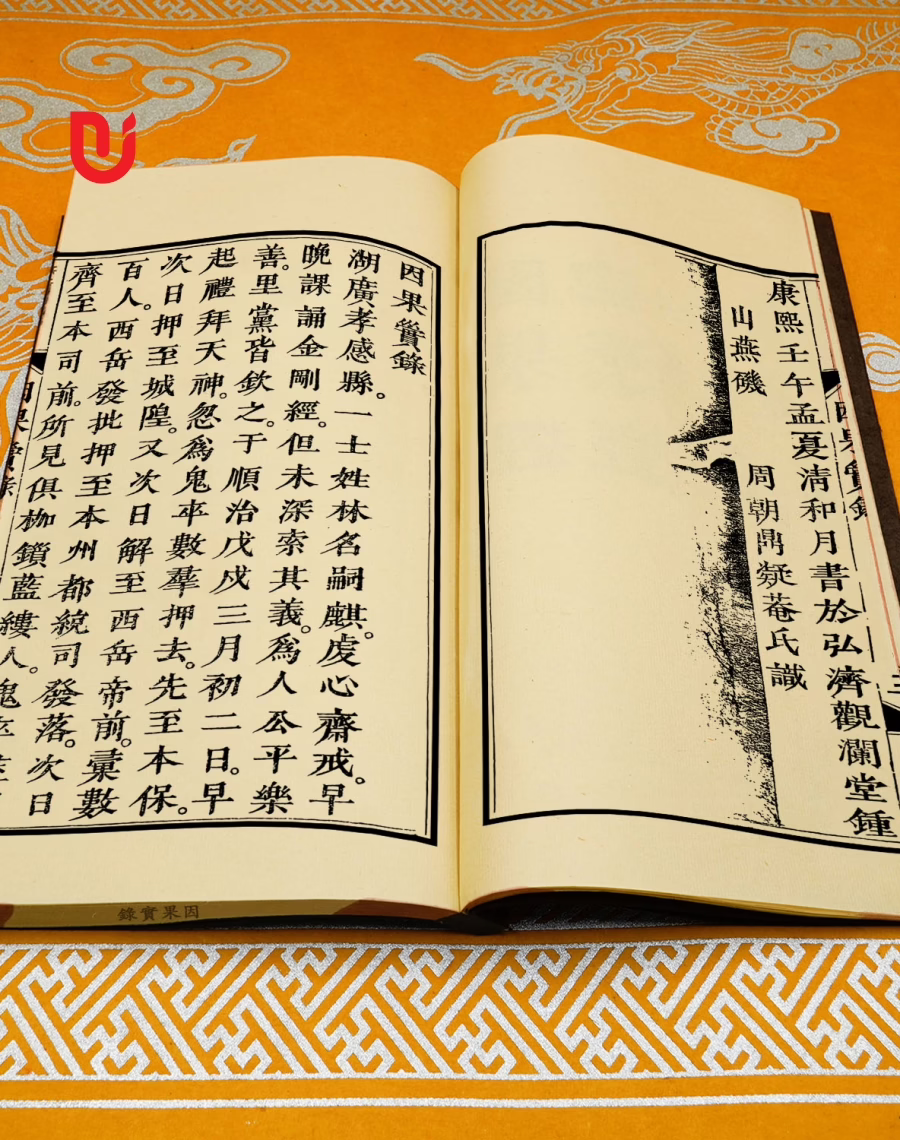 因果實錄
康熙壬午孟夏清和月書於弘濟觀瀾堂鍾
山燕磯 周朝鼎凝菴氏識
因果實錄
湖廣孝感縣。一士姓林名嗣麒。虔心齋戒。早
晚課誦金剛經。但未深索其義。爲人公平樂
善。里黨皆欽之。于順治戊戌三月初二日。早
起禮拜天神。忽爲鬼卒數羣押去。先至本保。
次日押至城隍。又次日解至西岳帝前。彙數
百人。西岳發批押至本州都統司發落。次日
齊至本司前。所見俱枷鎖藍縷人。鬼卒
因果實錄